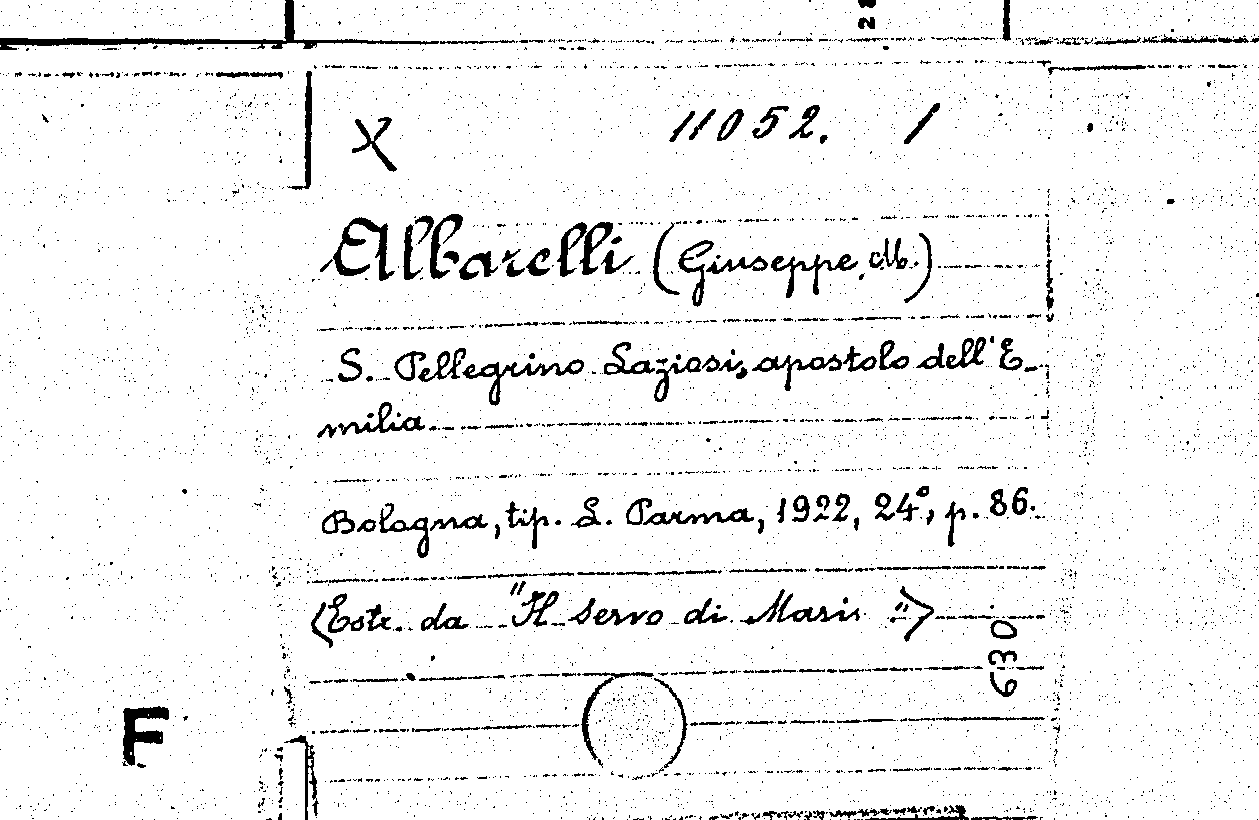 X 11052. 1
Albarelli (Giuseppe M.)
S. Pellegrino Laziosi, apostolo dell'E-
milia
Bologna, tip. L. Parma, 1922, 24°, p. 86.
(Estr. da "Il Servo di Maria")
630
F